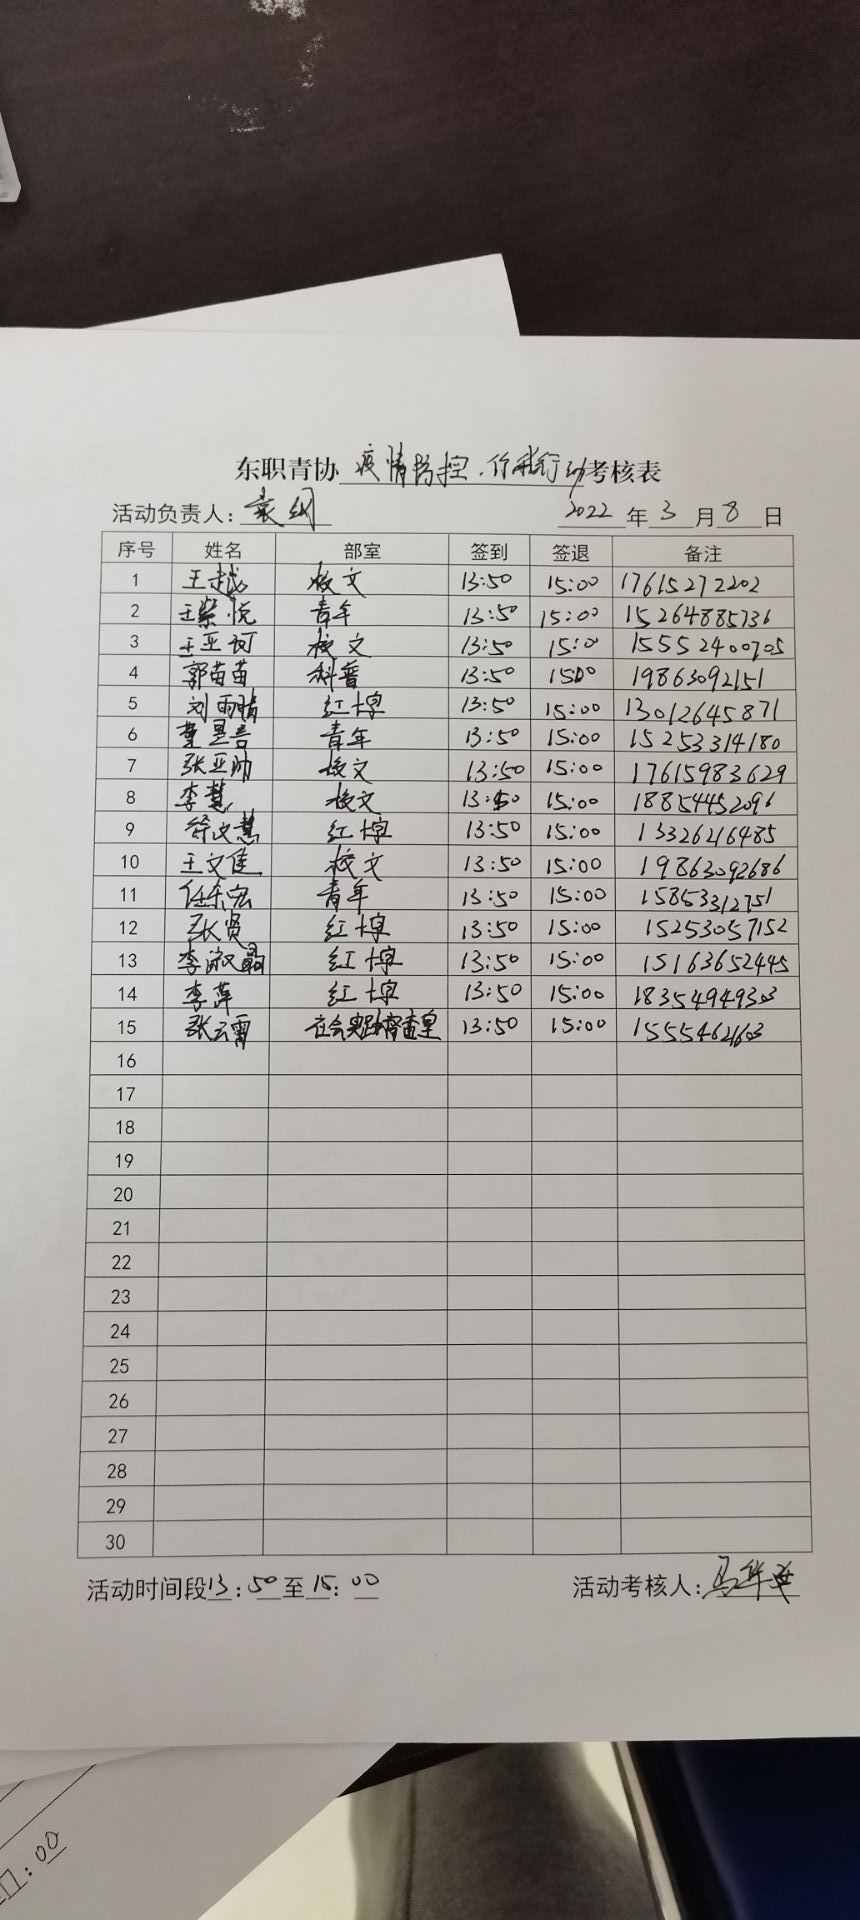 东职青协 疫情防控,你我行动 考核表
活动负责人: 袁 2022 年 3 月 8 日
序号 姓名 部室 签到 签退 备注
1 王越 校文 13:50 15:00 17615272202
2 王紫悦 青年 13:50 15:00 15264885736
3 王亚 校文 13:50 15:0 15552400705
4 郭苗苗 科普 13:50 1500 19863092151
5 刘雨晴 红十字 13:50 15:00 13012645871
6 青年 13:50 15:00 15253314180
7 张亚帅 校文 13:50 15:00 17615983629
8 李慧 校文 13:50 15:00 18854452096
9 徐文慧 红十字 13:50 15:00 13326216485
10 王文佳 校文 13:50 15:00 19863092686
11 任乐宏 青年 13:50 15:00 15853312751
12 张贤 红十字 13:50 15:00 15253057152
13 李淑 红十字 13:50 15:00 15163652445
14 李萍 红十字 13:50 15:00 18354949303
15 张云霄 13:50 15:00 15554621603
16
17
18
19
20
21
22
23
24
25
26
27
28
29
30
活动时间段 13:50 至 15:00 活动考核人: 马
:00